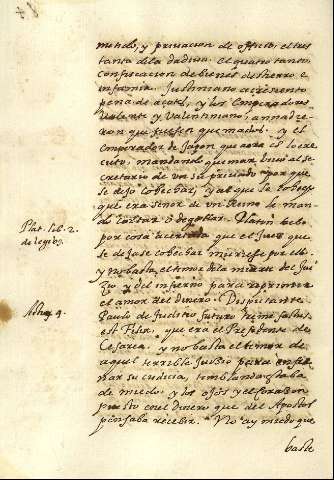 mundo, y privacion de officio, el tres
tanto dela dadiva. el quatro tanto,
confiscacion de bienes destierro e
infamia. Justiniano acresento
pena de açotes, y los Emperadores
Valente y Valentiniano, annadie-
ron que fuessen quemados. y el
Emperador de Japon que aora es lo exe-
cuto, mandando quemar vivo al se-
cretario de un su privado porque
se dejo cohechar, y al que le cohecho
que era señor de un Reyno le man-
do cortar o degollar. Platon tubo
por cosa que el Juez que
se dejase cohechar muriesse por ello.
y no basta el temor dela muerte del Jui-
zio y del infierno para reprimir
el amor del dinero. Disputante
Paulo de Juditio futuro tremefactus
est Felix, que era el Presidente de
Cesarea. y no basta el temor de
aquel terrible juizio para enfre-
nar su cudicia, temblando estaba
de miedo, y los ojos y el corazon
puesto en el dinero que del Apostol
pensaba recebir. No ay miedo que
baste
Plat. lib. 2.
de legibus.